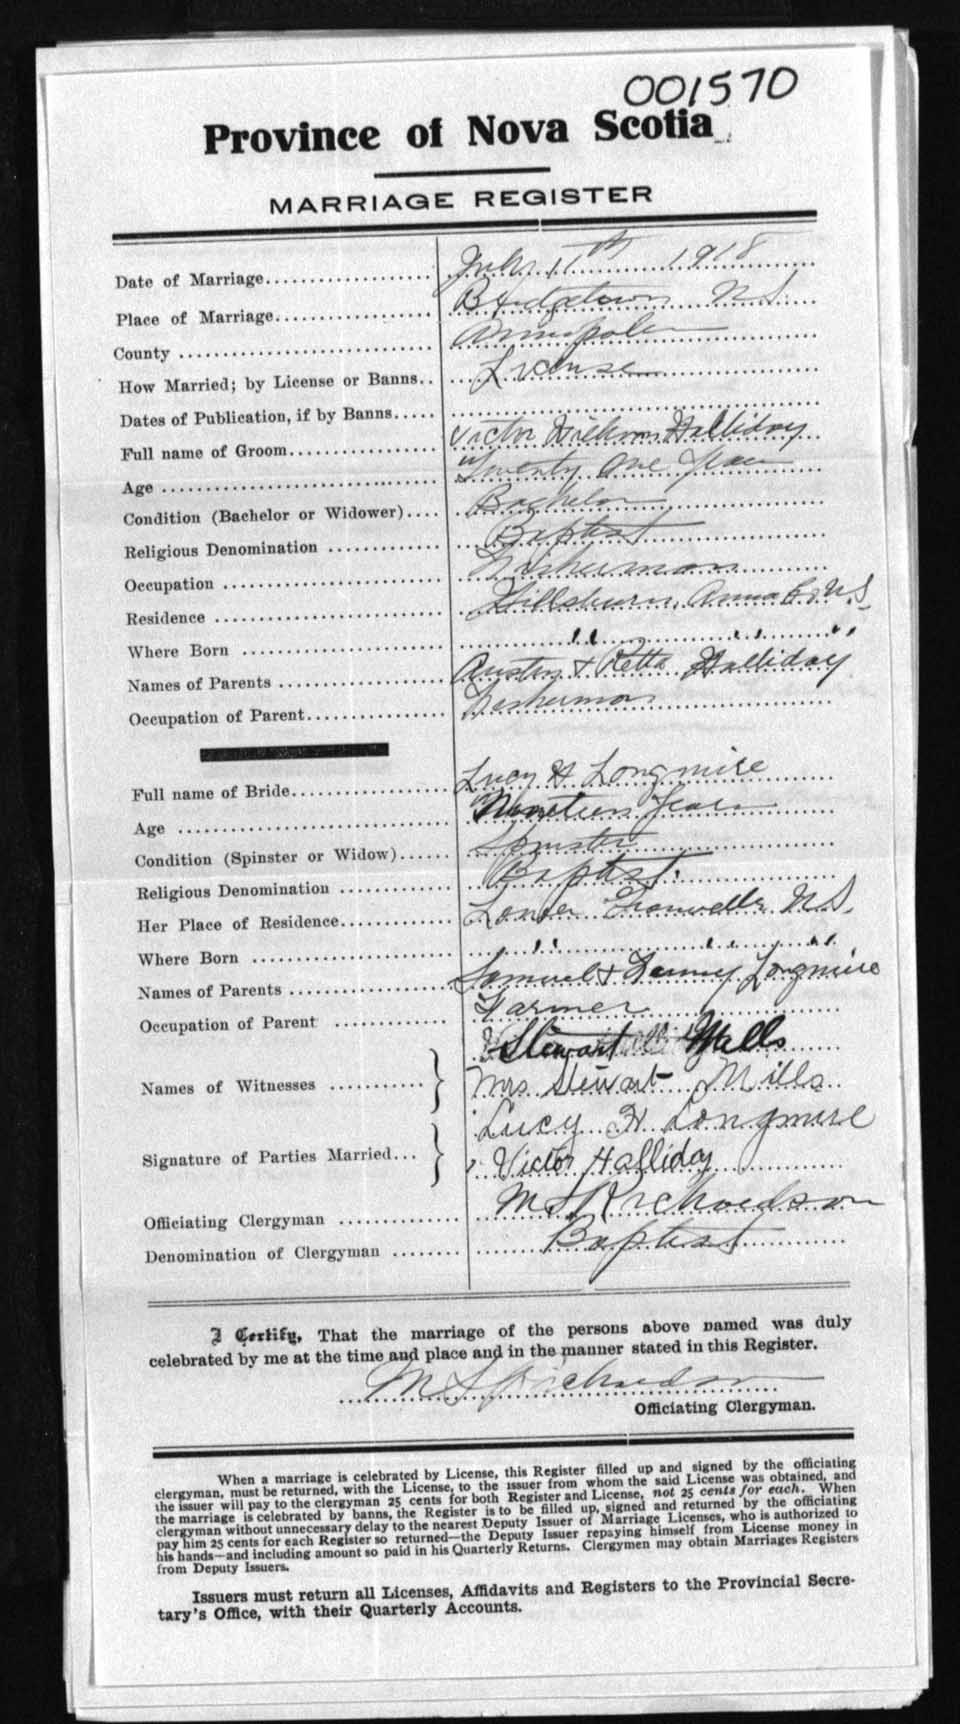 001570
Province of Nova Scotia
MARRIAGE REGISTER
Date of Marriage July 11th 1918
Place of Marriage Bridgetown N.S.
County Annapolis
How Married; by License or Banns.. License
Dates of Publication, if by Banns
Full name of Groom Victor William Halliday
Age Twenty one Years
Condition (Bachelor or Widower) Bachelor
Religious Denomination Baptist
Occupation Fisherman
Residence Hillsburn, Anna Co, N.S.
Where Born " " " "
Names of Parents Austin & Retta Halliday
Occupation of Parent Fisherman
Full name of Bride Lucy H Longmire
Age Nineteen Years
Condition (Spinster or Widow) Spinster
Religious Denomination Baptist.
Her Place of Residence Lower Granville N.S.
Where Born " " " "
Names of Parents Samuel & Fanny Longmire
Occupation of Parent Farmer
Stewart Mills
Names of Witnesses Mrs. Stewart Mills
Lucy H Longmire
Signature of Parties Married Victor Halliday
Officiating Clergyman M S Richardson
Denomination of Clergyman Baptist
I Certify, That the marriage of the persons above named was duly
celebrated by me at the time and place and in the manner stated in this Register.
M S Richardson
Officiating Clergyman.
When a marriage is celebrated by License, this Register filled up and signed by the officiating
clergyman, must be returned, with the License, to the issuer from whom the said License was obtained, and
the issuer will pay to the clergyman 25 cents for both Register and License, not 25 cents for each. When
the marriage is celebrated by banns, the Register is to be filled up, signed and returned by the officiating
clergyman without unnecessary delay to the nearest Deputy Issuer of Marriage Licenses, who is authorized to
pay him 25 cents for each Register so returned—the Deputy Issuer repaying himself from License money in
his hands—and including amount so paid in his Quarterly Returns. Clergymen may obtain Marriages Registers
from Deputy Issuers.
Issuers must return all Licenses, Affidavits and Registers to the Provincial Secre-
tary's Office, with their Quarterly Accounts.